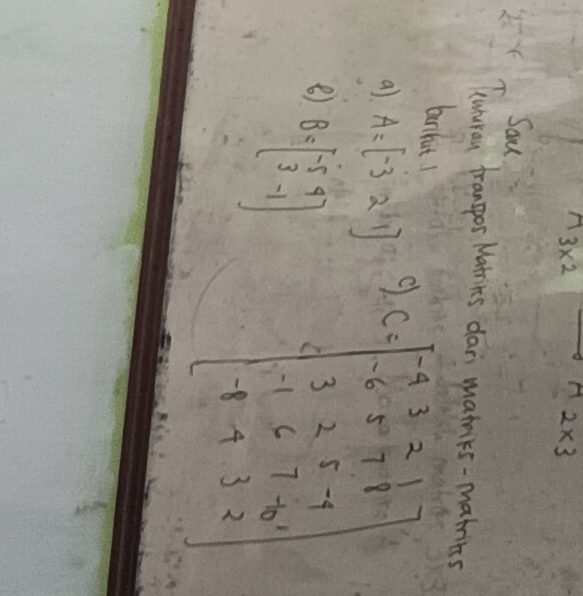 A 3x2 → A 2x3
Soal
Tentukan Transpos Matriks dari matriks-matriks
berikut!
a) A = [-3 2 1]
b) B = [-5 4
3 -1]
c) C = [-4 3 2 1
-6 5 7 8
3 2 5 -4
-1 6 7 -10
-8 4 3 2]